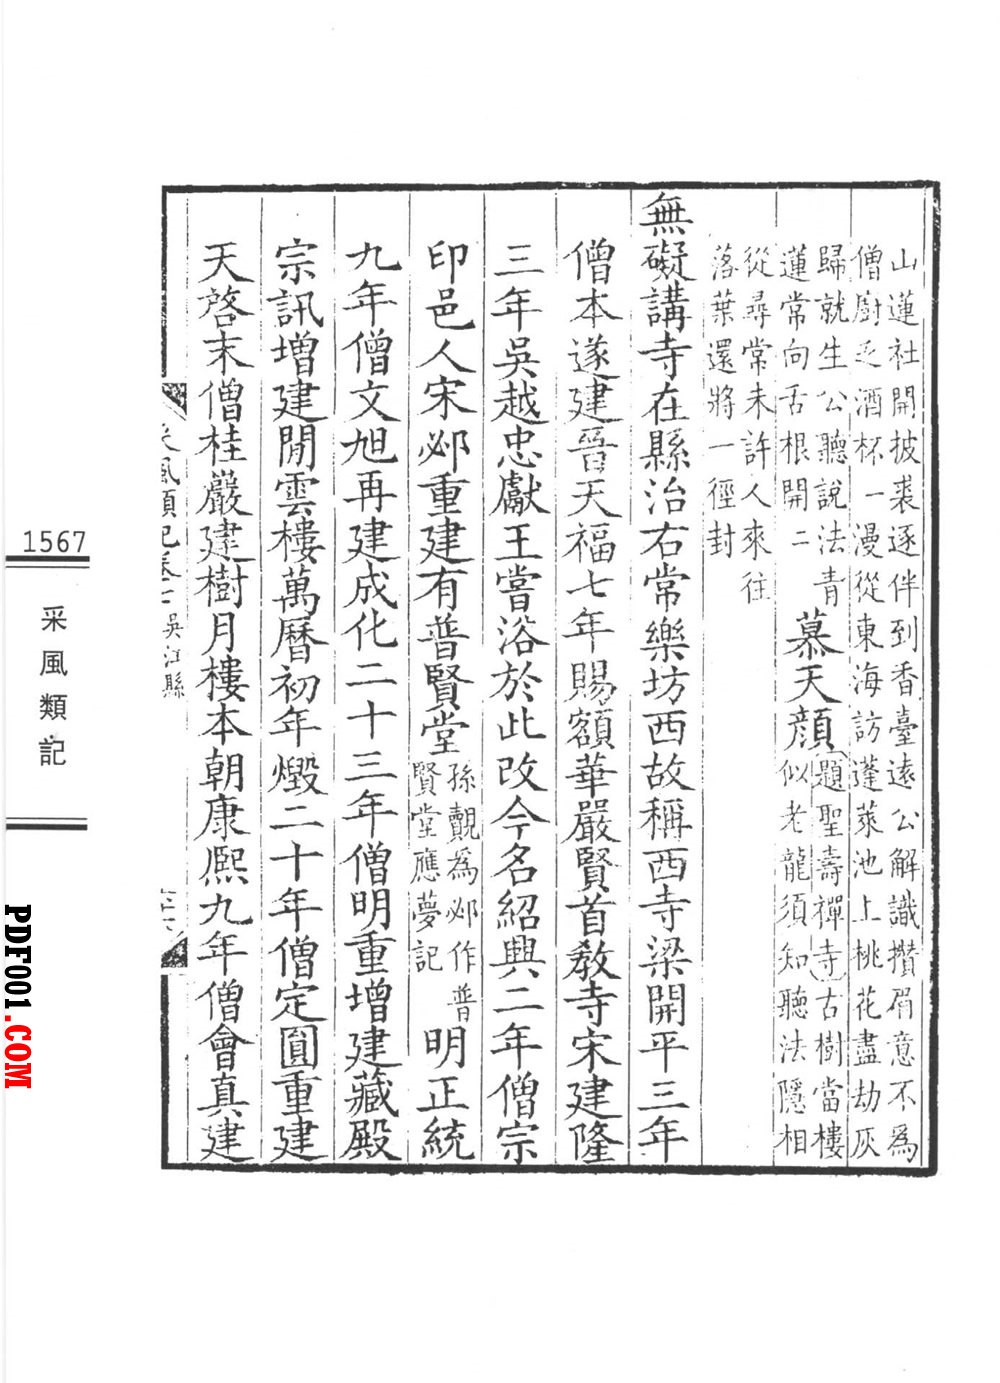 山蓮社開披裘逐伴到香臺遠公解識攢眉意不為
僧廚乏酒杯一漫從東海訪蓬萊池上桃花盡劫灰
歸就生公聽說法青
蓮常向舌根開二
慕天顏
題聖壽禪寺古樹當樓
似老龍須知聽法隱相
從尋常未許人來往
落葉還將一徑封
無礙講寺在縣治右常樂坊西故稱西寺梁開平三年
僧本遂建晉天福七年賜額華嚴賢首教寺宋建隆
三年吳越忠獻王嘗浴於此改今名紹興二年僧宗
印邑人宋邲重建有普賢堂
孫覿為邲作普
賢堂應夢記
明正統
九年僧文旭再建成化二十三年僧明重增建藏殿
宗訊增建閒雲樓萬曆初年燬二十年僧定圓重建
天啓末僧桂巖建樹月樓本朝康熙九年僧會真建
采風類記卷七 吳江縣
1567
采風類記
PDF001.COM